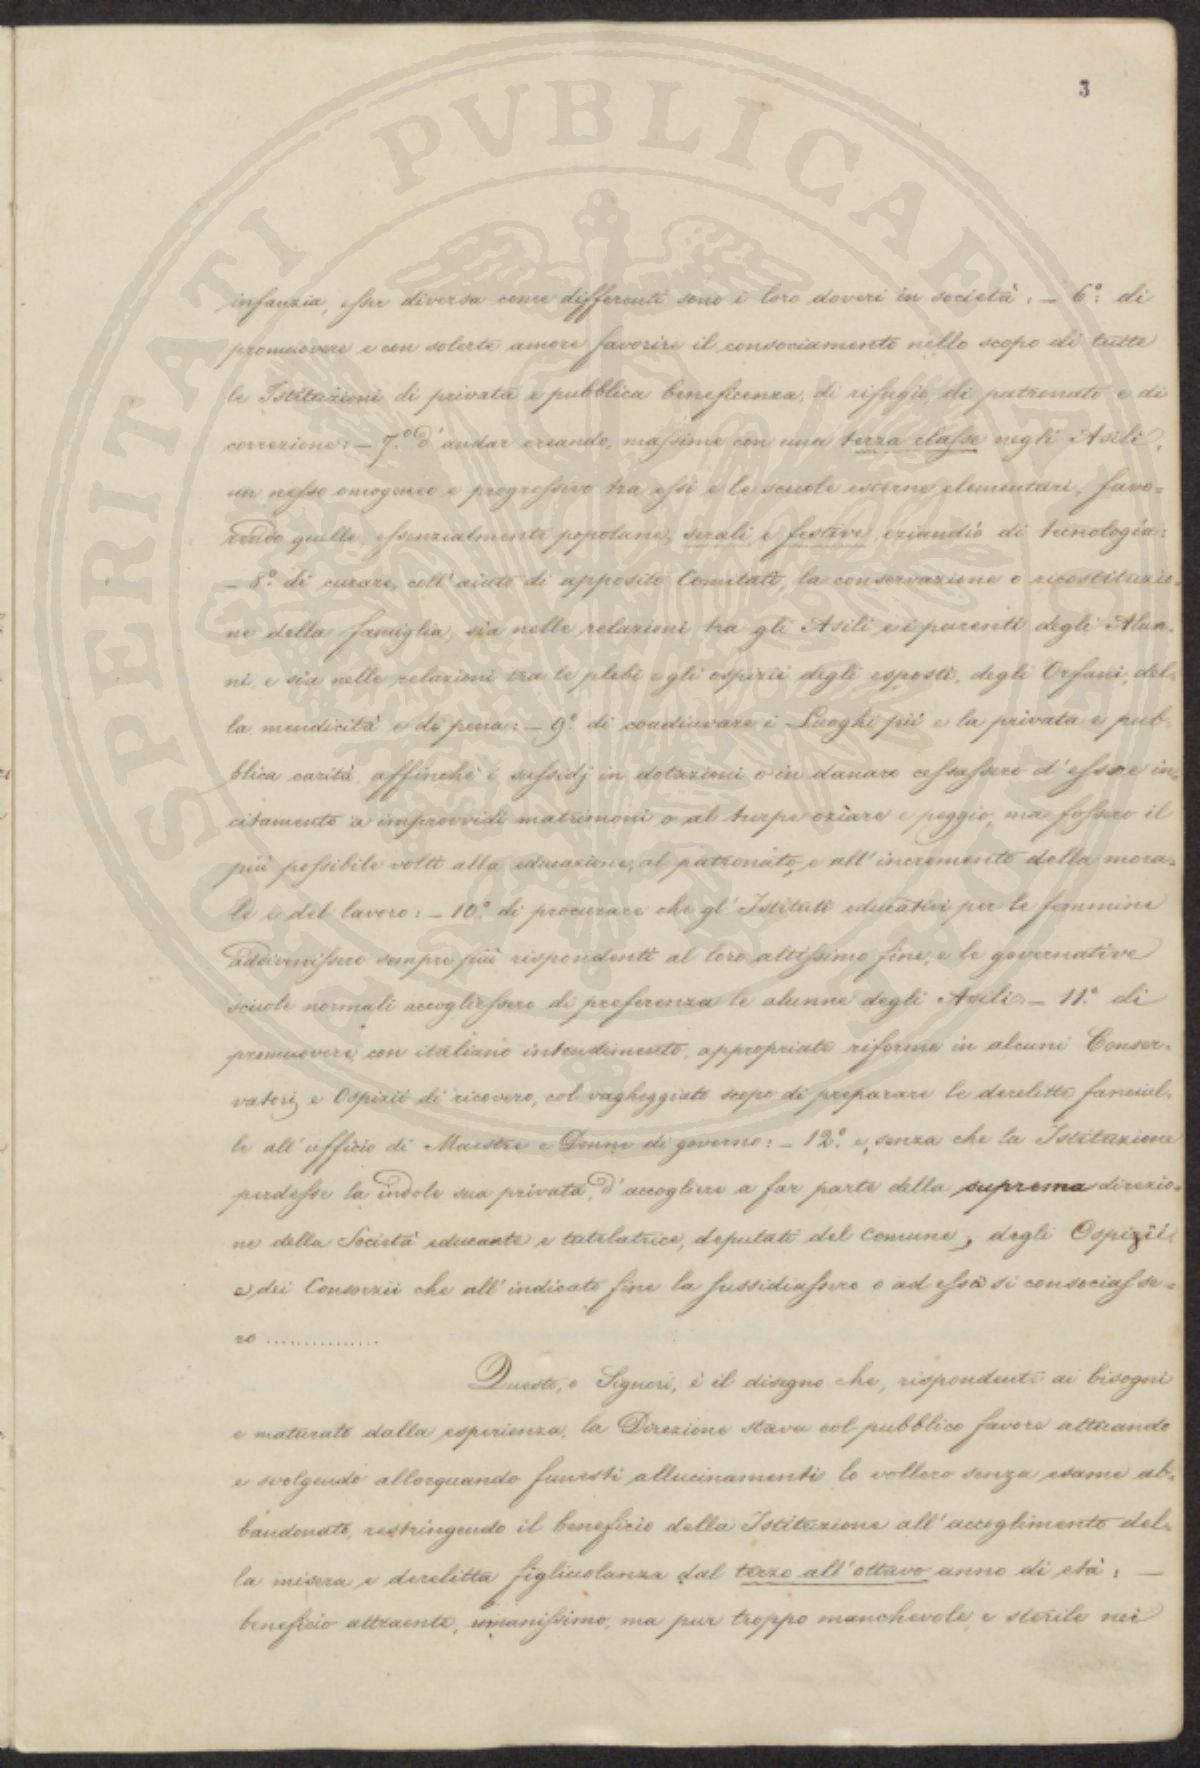 3
infanzia, esser diversa come differenti sono i loro doveri in società: – 6.° di
promuovere e con solerte amore favorire il consociamento nello scopo di tutte
le Istituzioni di privata e pubblica beneficenza, di rifugio, di patronato e di
correzione: – 7.° d'andar creando, massime con una terza classe negli Asili,
un nesso omogeneo e progressivo tra essi e le scuole esterne elementari, favo=
rendo quelle essenzialmente popolane, serali e festive, eziandio di tecnologia:
– 8.° di curare, coll'aiuto di appositi Comitati, la conservazione o ricostituzio=
ne della famiglia, sia nelle relazioni tra gli Asili e i parenti degli Alun=
ni, e sia nelle relazioni tra le plebi e gli ospizii degli esposti, degli Orfani, del=
la mendicità e di pena: – 9.° di coadiuvare i Luoghi pii e la privata e pub=
blica carità affinchè i sussidj in dotazioni o in danaro cessassero d'essere in=
citamento a improvvidi matrimoni o al turpe oziare e peggio, ma fossero il
più possibile volti alla educazione, al patronato, e all'incremento della mora=
le e del lavoro: – 10.° di procurare che gl'Istituti educativi per le femmine
addivenissero sempre più rispondenti al loro altissimo fine, e le governative
scuole normali accogliessero di preferenza le alunne degli Asili: – 11.° di
promuovere, con italiano intendimento, appropriate riforme in alcuni Conser=
vatorj e Ospizii di ricovero, col vagheggiato scopo di preparare le derelitte fanciul=
le all'ufficio di Maestre e Donne di governo: – 12.° e, senza che la Istituzione
perdesse la indole sua privata, d'accogliere a far parte della suprema direzio=
ne della Società educante e tutelatrice, deputati del Comune, degli Ospizii
e dei Consorzii che all'indicato fine la sussidiassero o ad essa si consociasse=
ro ...............
Questo, o Signori, è il disegno che, rispondente ai bisogni
e maturato dalla esperienza, la Direzione stava col pubblico favore attuando
e svolgendo allorquando funesti allucinamenti lo vollero senza esame ab=
bandonato, restringendo il beneficio della Istituzione all'accoglimento del=
la misera e derelitta figliuolanza dal terzo all'ottavo anno di età: –
beneficio attraente, umanissimo, ma pur troppo manchevole e sterile nei
SPERITATI PVBLICAE